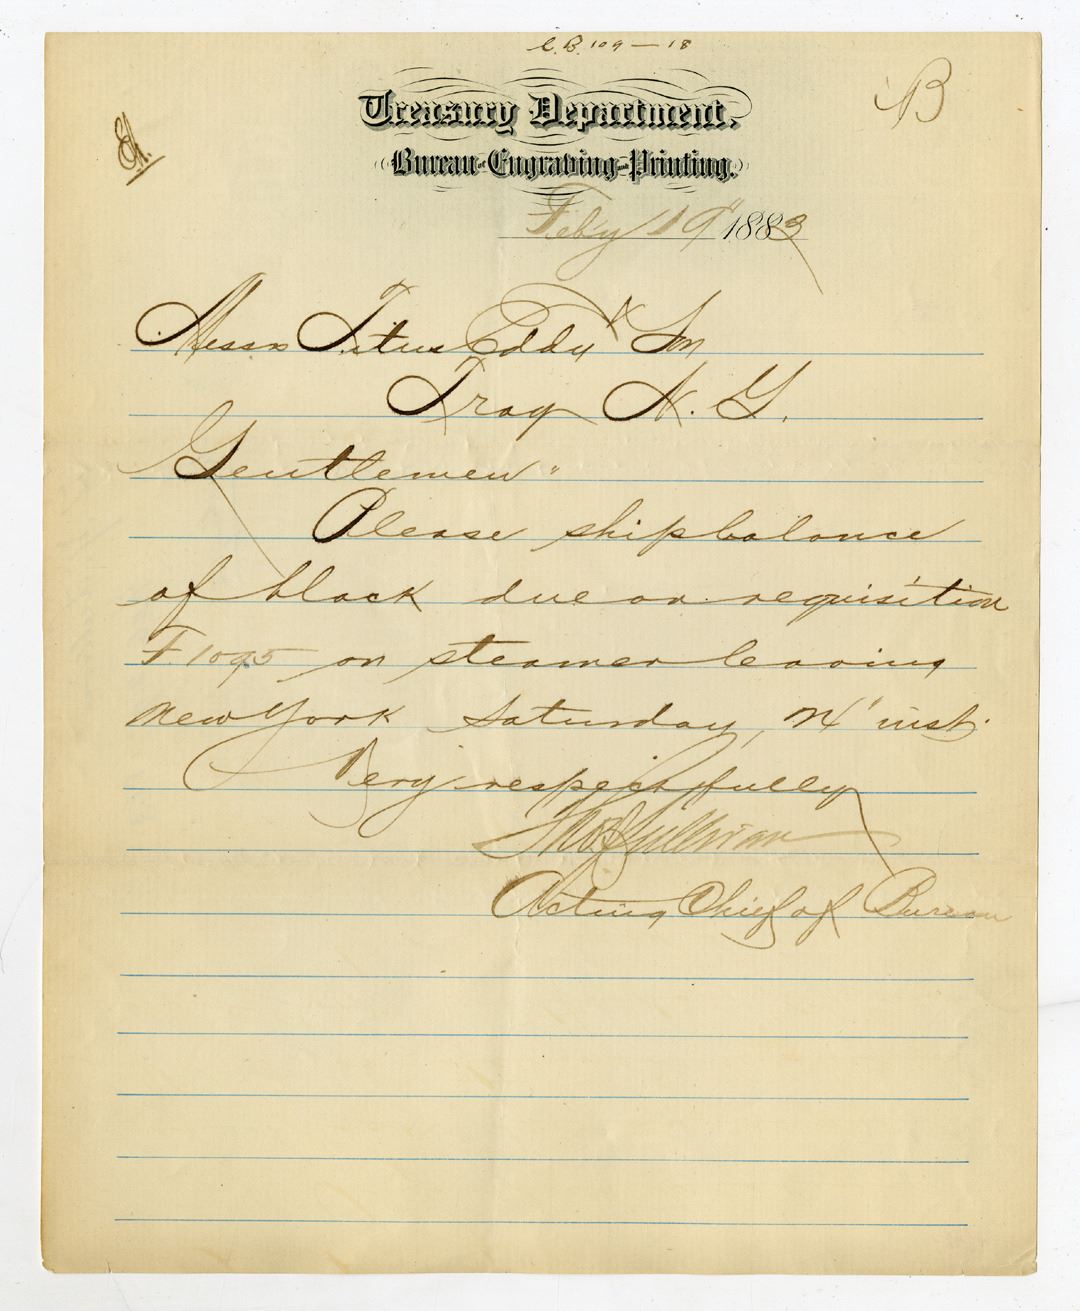 C.B. 109 — 18
B
Treasury Department.
Bureau of Engraving and Printing.
Feby 19" 1883
Messrs Titus Eddy & Son
Troy N.Y.
Gentlemen"
Please ship balance
of black due on requisition
F.1095 on steamer leaving
New York Saturday, 24" inst.
Very respectfully
Sullivan
Acting Chief of Bureau